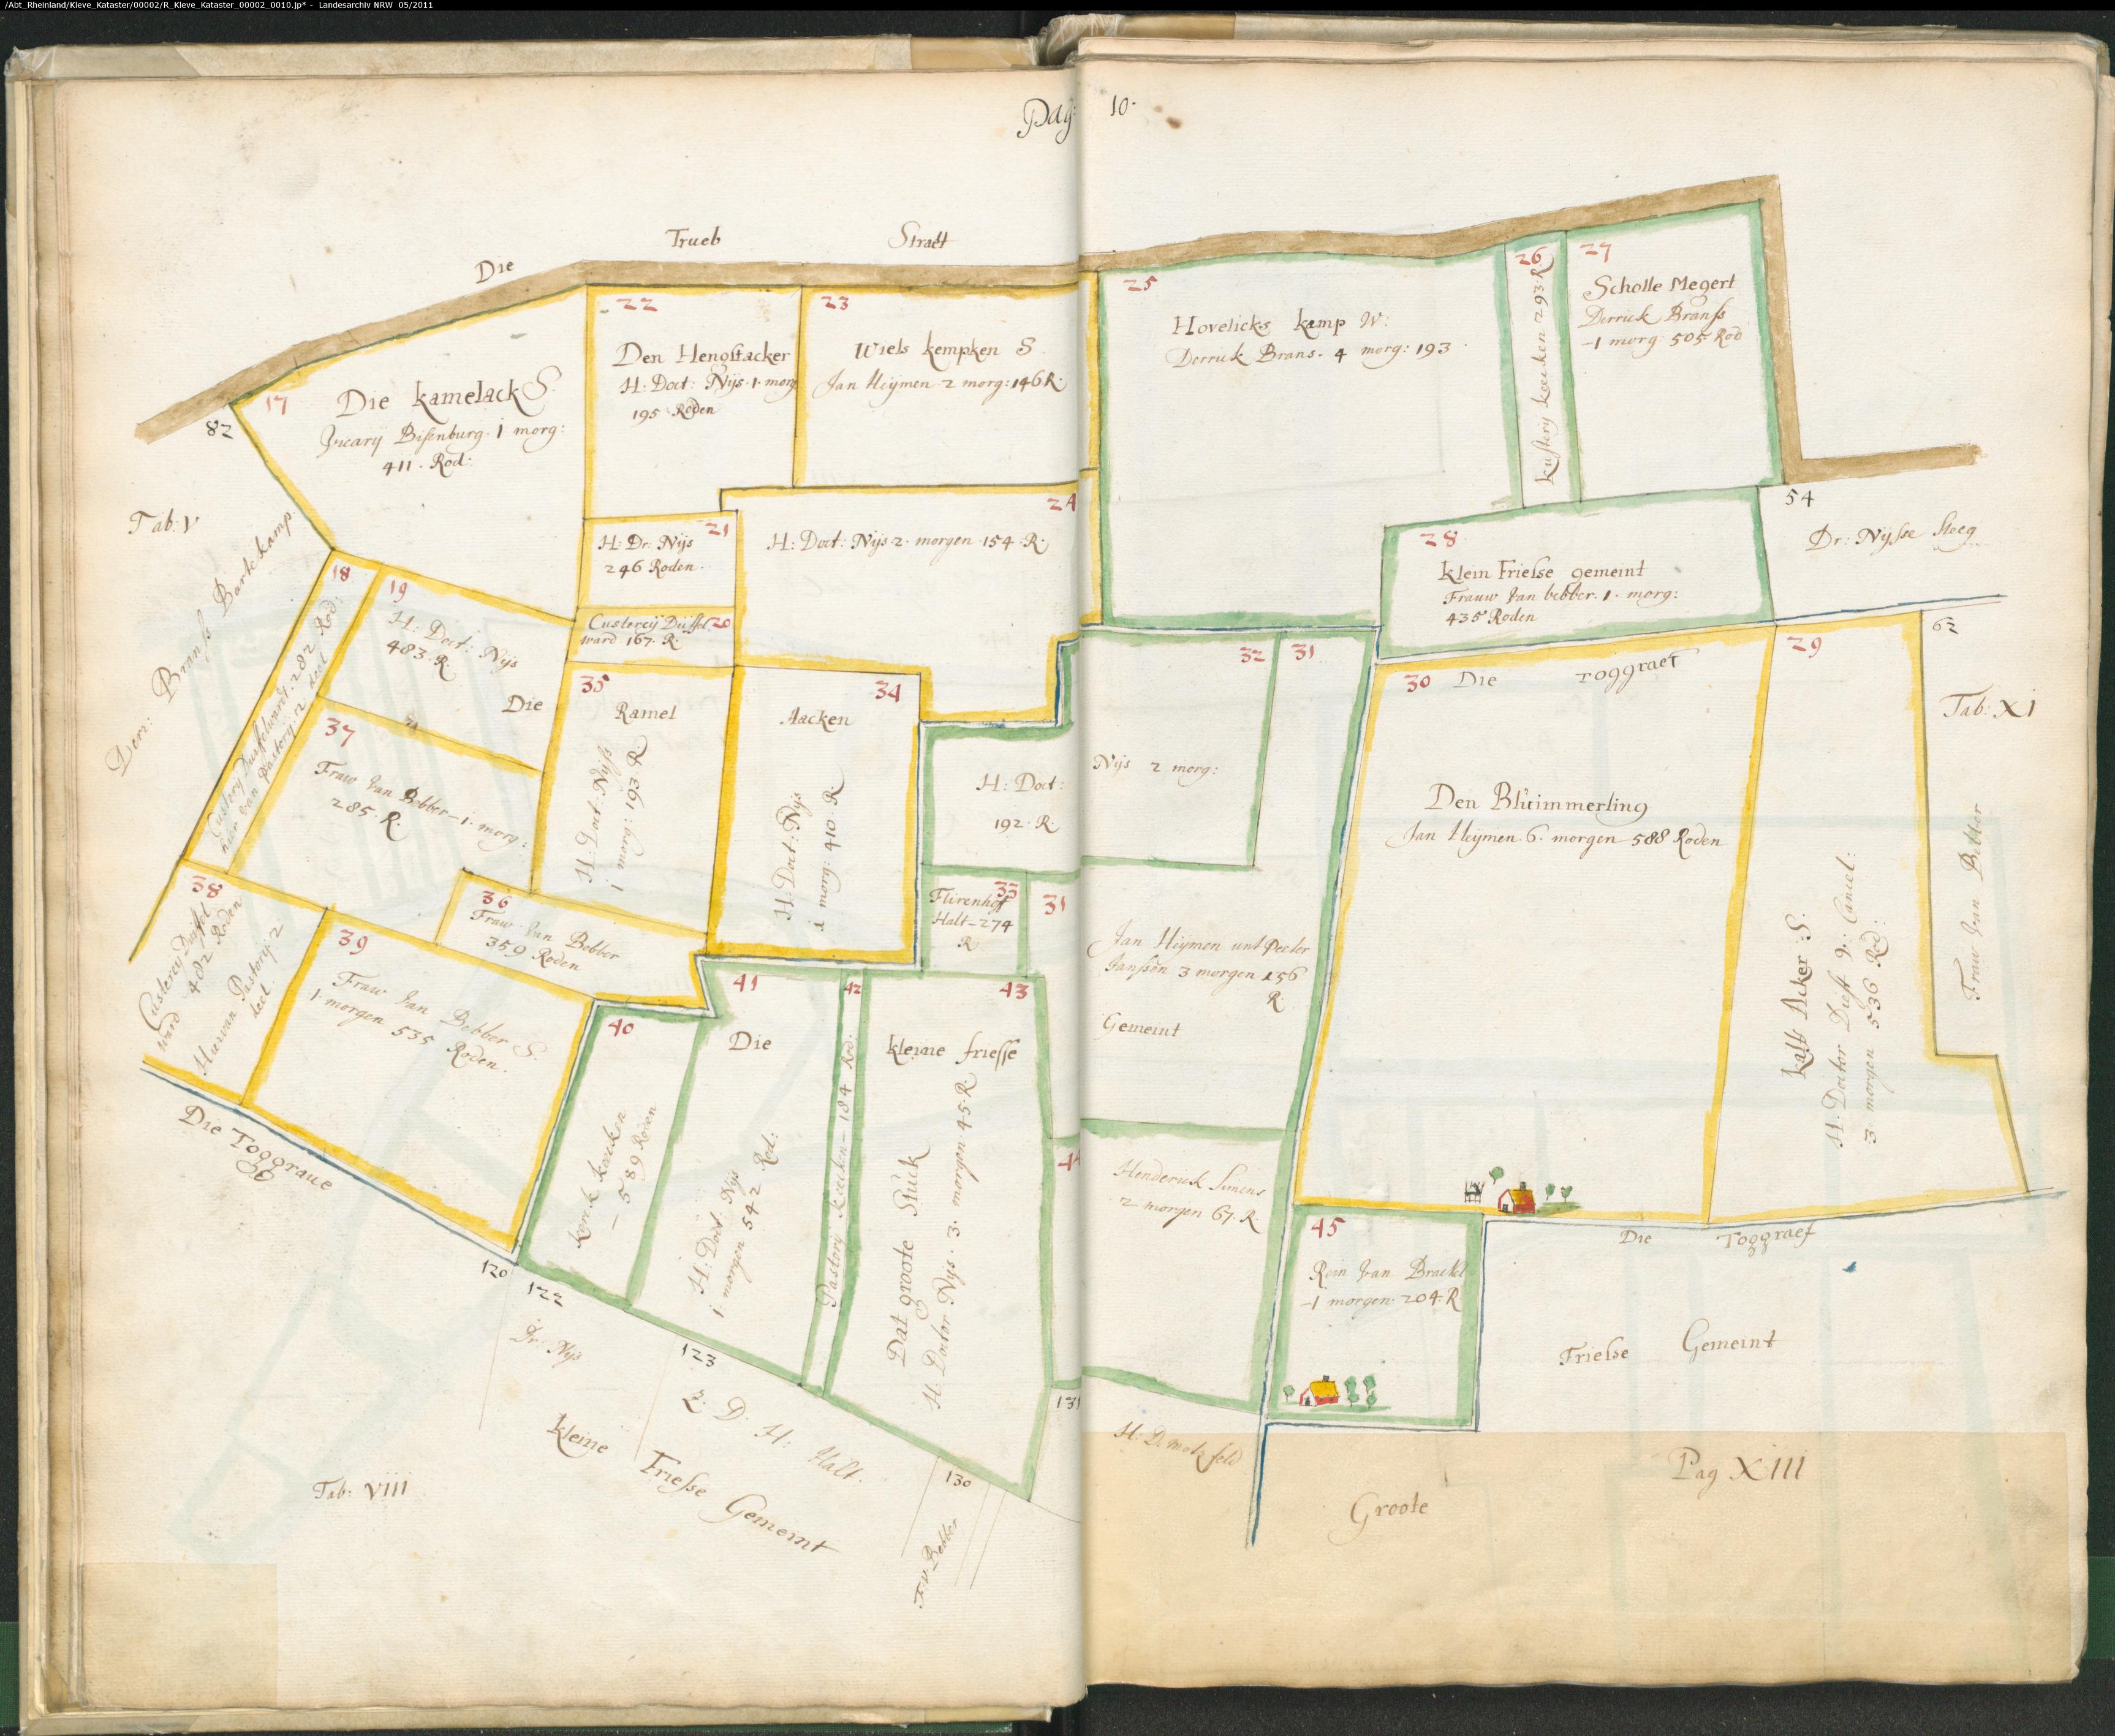 /Abt_Rheinland/Kleve_Kataster/00002/R_Kleve_Kataster_00002_0010.jp* - Landesarchiv NRW 05/2011
Pag: 10.
Die Trueb Straet
82
17
Die kamelack S.
Vicary Bisenburg. 1 morg:
411. Rod:
22
Den Hengstacker
H. Doct: Nÿs. 1. morg
195 Roden
23
Wiels kempken S
Jan Heÿmen. 2 morg: 146 R.
24
H: Doct: Nÿs 2. morgen 154. R.
21
H: Dr. Nÿs
246 Roden.
20
Custereÿ Düffel
ward 167. R.
25
Hovelicks kamp W:
Derrick Brans. 4 morg: 193.
26
293 R.
27
Scholle Megert
Derrick Branss
-1 morg 505 Rod
54
Dr: Nÿsse
28
Klein Frielse gemeint
Frauw Van bebber. 1. morg:
435 Roden
62
Tab: XI
Fraw Van Bebber
Tab: V
Den: Branss kamp.
18
Custerÿ Duffelwardt. 282 Rod:
hier van Pastorÿ 2 deel
19
H: Doct: Nÿs
483. R.
Die Ramel Aacken
35
H: Doct: Nÿss
1 morg: 193 R.
34
H: Doct: Nÿs
1 morg: 410. R.
37
Fraw Van Bebber - 1. morg:
285. R.
36
Fraw Van Bebber
359 Roden
38
Custereÿ Duffel
ward 482 Roden
Hiervan Pastorÿ 2
deel
39
Fraw Van Bebber S.
1 morgen 535 Roden.
Die Toggraue
32
31
H: Doct: Nÿs 2 morg:
192. R.
33
Flirenhoff
Halt - 274
R
31
Jan Heÿmen unt Peeter
Janssen 3 morgen 156
R.
30
Die Toggraef
Den Blümmerling
Jan Heÿmen. 6. morgen 588 Roden
29
Kalt Acker: S.
H: Doctor Diest
3 morgen 536 Rod:
40
- 589 Roden
41
42
43
Die kleine friesse Gemeint
H: Doct: Nÿs
1 morgen 542 Rod:
Pastorÿ - 184 Rod:
Dat groote Stuck
H. Doctor Nÿs. 3. morgen 45. R.
44
Henderick Simens
2 morgen 67. R.
45
Van Brackel
-1 morgen. 204. R
Die Toggraef
Frielse Gemeint
120
122
Dr: Nÿs
123
D: H: Halt.
130
F: V: Bebber
131
Kleine Friesse Gemeint
Tab: VIII
Groote
Pag XIII